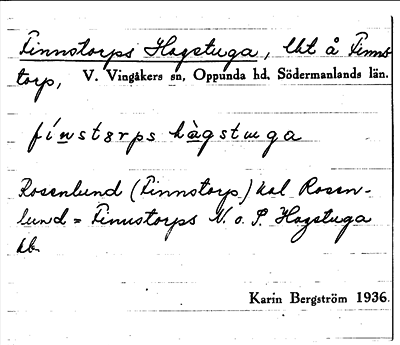 Finnstorps Hagstuga, lht å Finns-
torp, V. Vingåkers sn, Oppunda hd, Södermanlands län.
fínstɜrps hàgstuga
Rosenlund (Finnstorp) kal Rosen-
lund = Finnstorps N. o. S. Hagstuga
hb.
Karin Bergström 1936.